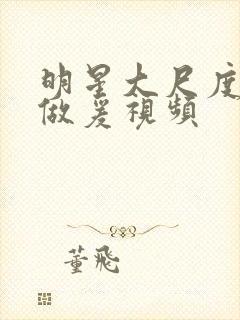 明星大尺度
做爰視頻
董飛